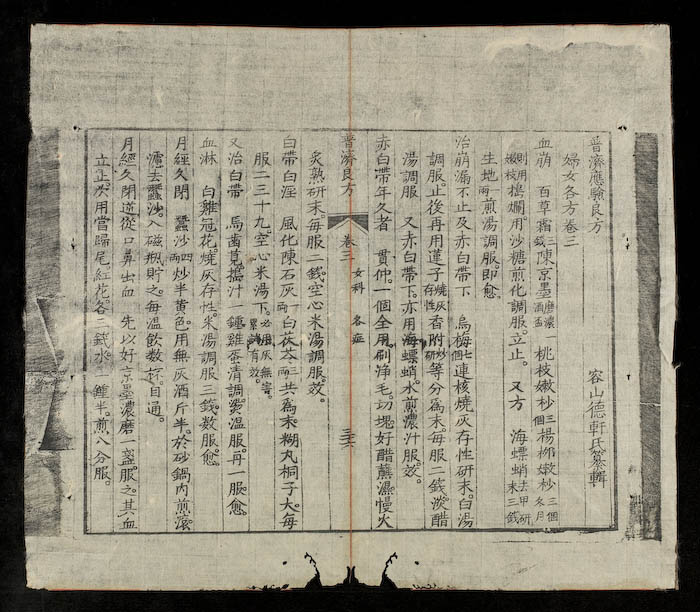 普濟應驗良方
容山德軒氏纂輯
婦女各方卷三
血崩 百草霜三錢陳京墨磨濃一酒盃桃枝嫩杪三個楊柳嫩杪三個冬月
則用嫩枝搗爛用沙糖煎化調服立止。 又方 海螵蛸去甲研末三錢
生地一兩煎湯調服即愈。
治崩漏不止及赤白帶下 烏梅七個連核燒灰存性研末白湯
調服止後再用蓮子燒灰存性香附炒研等分為末每服二錢淡醋
湯調服 又赤白帶下亦用海螵蛸水煎濃汁服效。
赤白帶年久者 貫仲一個全用刷淨毛切塊好醋蘸濕慢火
普濟良方 卷三 女科 各症 三六
炙熟研末每服二錢空心米湯調服效。
白帶白淫 風化陳石灰一兩白茯苓三兩共為末糊丸桐子大每
服二三十丸空心米湯下必用灰無害累試有效。
又治白帶 馬齒莧搗汁一鍾雞蛋清調燙溫服再一服愈
血淋 白雞冠花燒灰存性米湯調服二錢數服愈
月經久閉 蠶沙四兩炒半黃色用無灰酒斤半於砂鍋內煎滾
濾去蠶沙入磁瓶貯之每溫飲數杯自通。
月經久閉逆從口鼻出血 先以好京墨濃磨一盞服之其血
立止次用當歸尾紅花各三錢水一鍾半煎八分服。